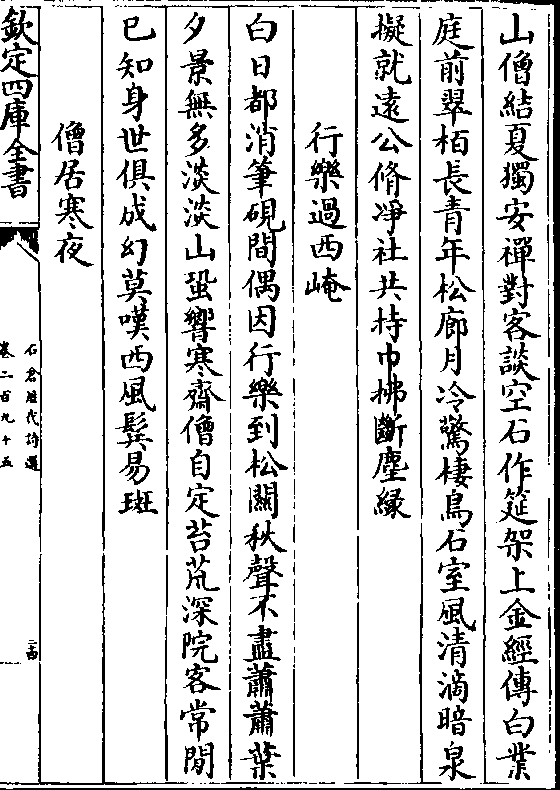 山僧結夏獨安禪對客談空石作筵架上金經傳白業
庭前翠栢長青年松廊月冷驚棲鳥石室風清滴暗泉
擬就遠公脩凈社共持巾拂斷塵縁
行樂過西崦
白日都消筆硯間偶因行樂到松關秋聲不盡蕭蕭葉
夕景無多淡淡山蛩響寒齋僧自定苔荒深院客常閒
已知身世俱成幻莫嘆西風鬂易斑
僧居寒夜
欽定四庫全書
石倉歴代詩選
卷二百九十五
二十四